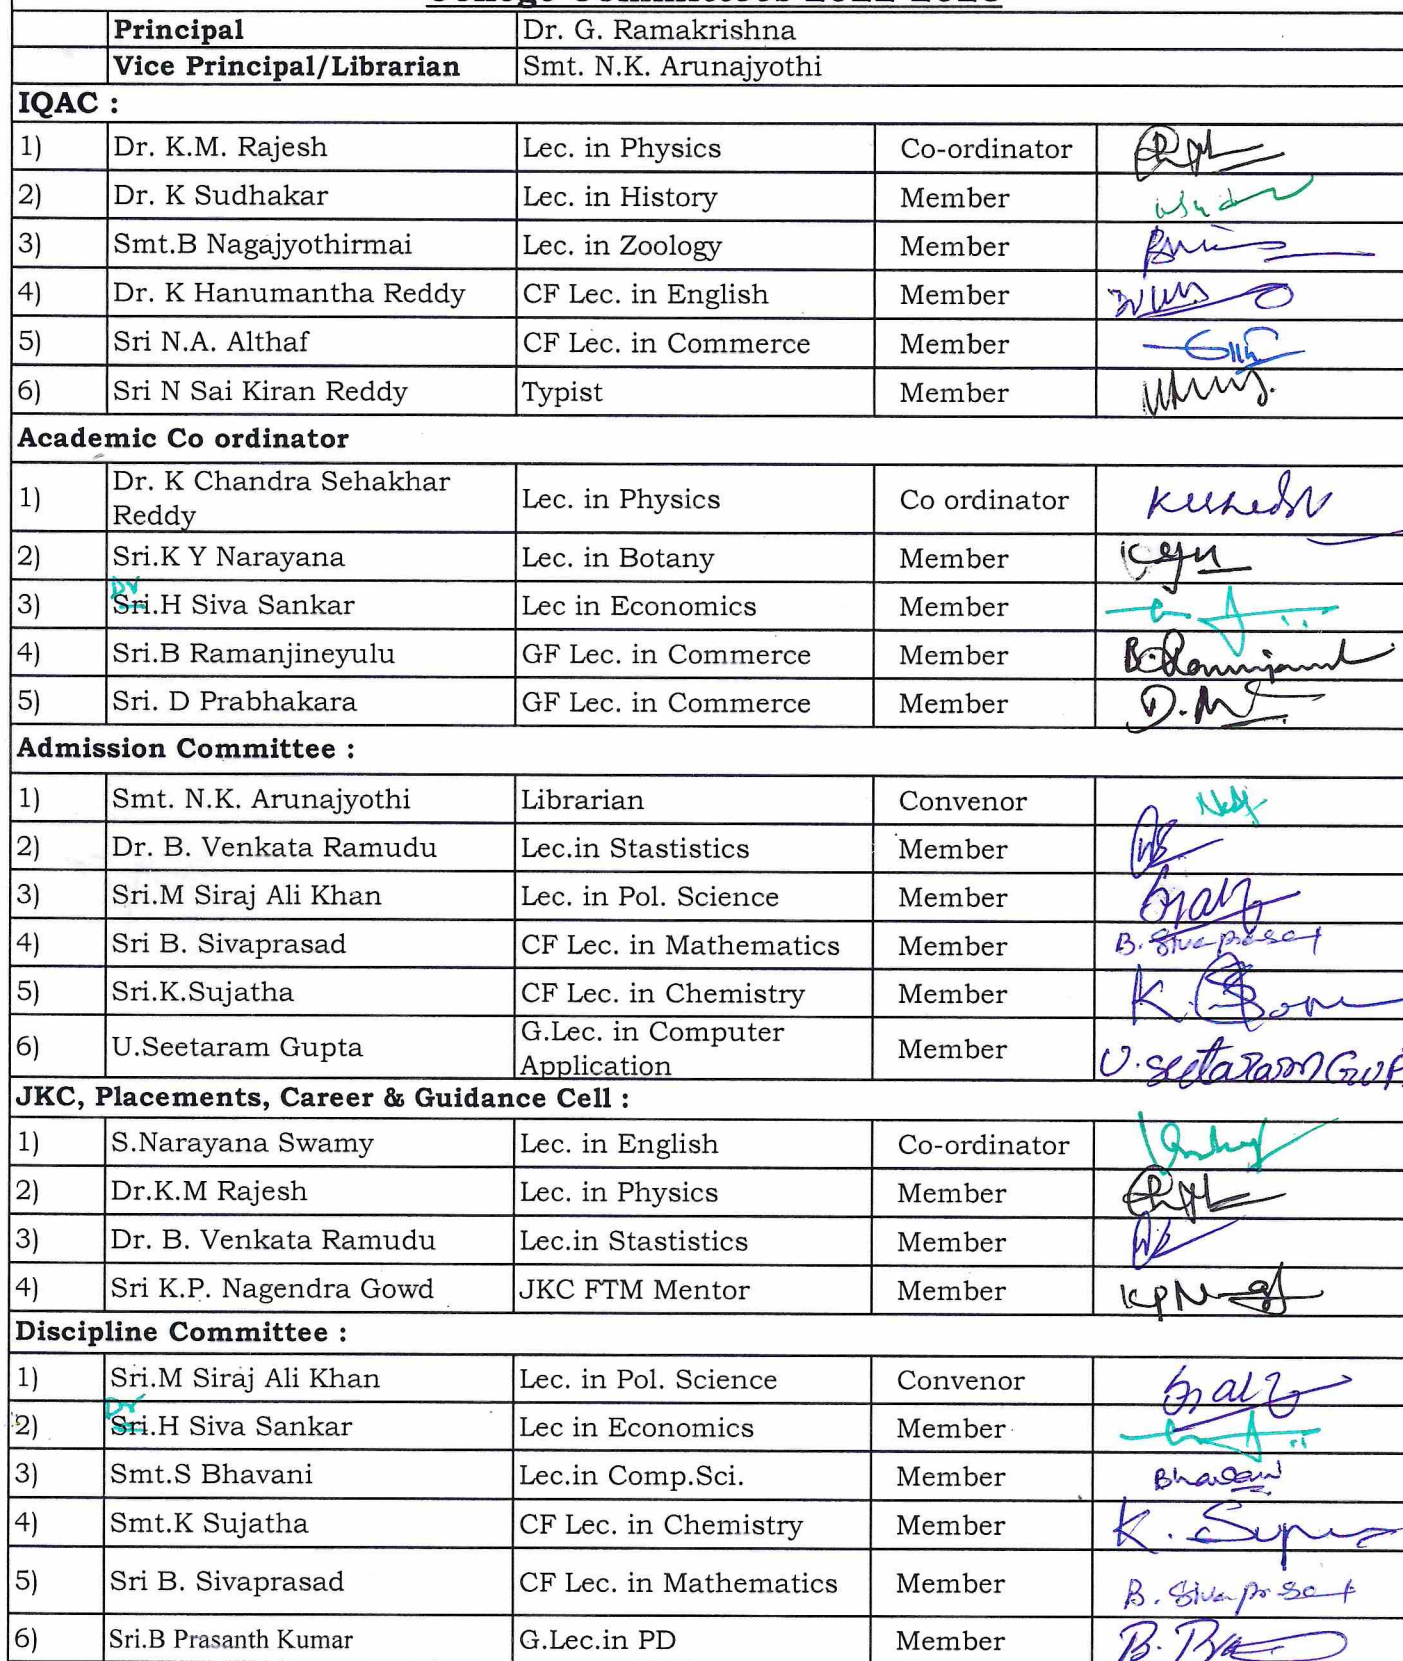 Principal Dr. G. Ramakrishna
Vice Principal/Librarian Smt. N.K. Arunajyothi
IQAC :
1) Dr. K.M. Rajesh Lec. in Physics Co-ordinator
2) Dr. K Sudhakar Lec. in History Member
3) Smt.B Nagajyothirmai Lec. in Zoology Member
4) Dr. K Hanumantha Reddy CF Lec. in English Member
5) Sri N.A. Althaf CF Lec. in Commerce Member
6) Sri N Sai Kiran Reddy Typist Member
Academic Co ordinator
1) Dr. K Chandra Sehakhar Lec. in Physics Co ordinator
Reddy
2) Sri.K Y Narayana Lec. in Botany Member
Dr
3) Sri.H Siva Sankar Lec in Economics Member
4) Sri.B Ramanjineyulu GF Lec. in Commerce Member
5) Sri. D Prabhakara GF Lec. in Commerce Member
Admission Committee :
1) Smt. N.K. Arunajyothi Librarian Convenor
2) Dr. B. Venkata Ramudu Lec.in Stastistics Member
3) Sri.M Siraj Ali Khan Lec. in Pol. Science Member
4) Sri B. Sivaprasad CF Lec. in Mathematics Member B. Sivaprasad
5) Sri.K.Sujatha CF Lec. in Chemistry Member
6) U.Seetaram Gupta G.Lec. in Computer Member U.seetaram Gup
Application
JKC, Placements, Career & Guidance Cell :
1) S.Narayana Swamy Lec. in English Co-ordinator
2) Dr.K.M Rajesh Lec. in Physics Member
3) Dr. B. Venkata Ramudu Lec.in Stastistics Member
4) Sri K.P. Nagendra Gowd JKC FTM Mentor Member
Discipline Committee :
1) Sri.M Siraj Ali Khan Lec. in Pol. Science Convenor
Dr
2) Sri.H Siva Sankar Lec in Economics Member
3) Smt.S Bhavani Lec.in Comp.Sci. Member Bhavani
4) Smt.K Sujatha CF Lec. in Chemistry Member
5) Sri B. Sivaprasad CF Lec. in Mathematics Member B. Sivaprasad
6) Sri.B Prasanth Kumar G.Lec.in PD Member